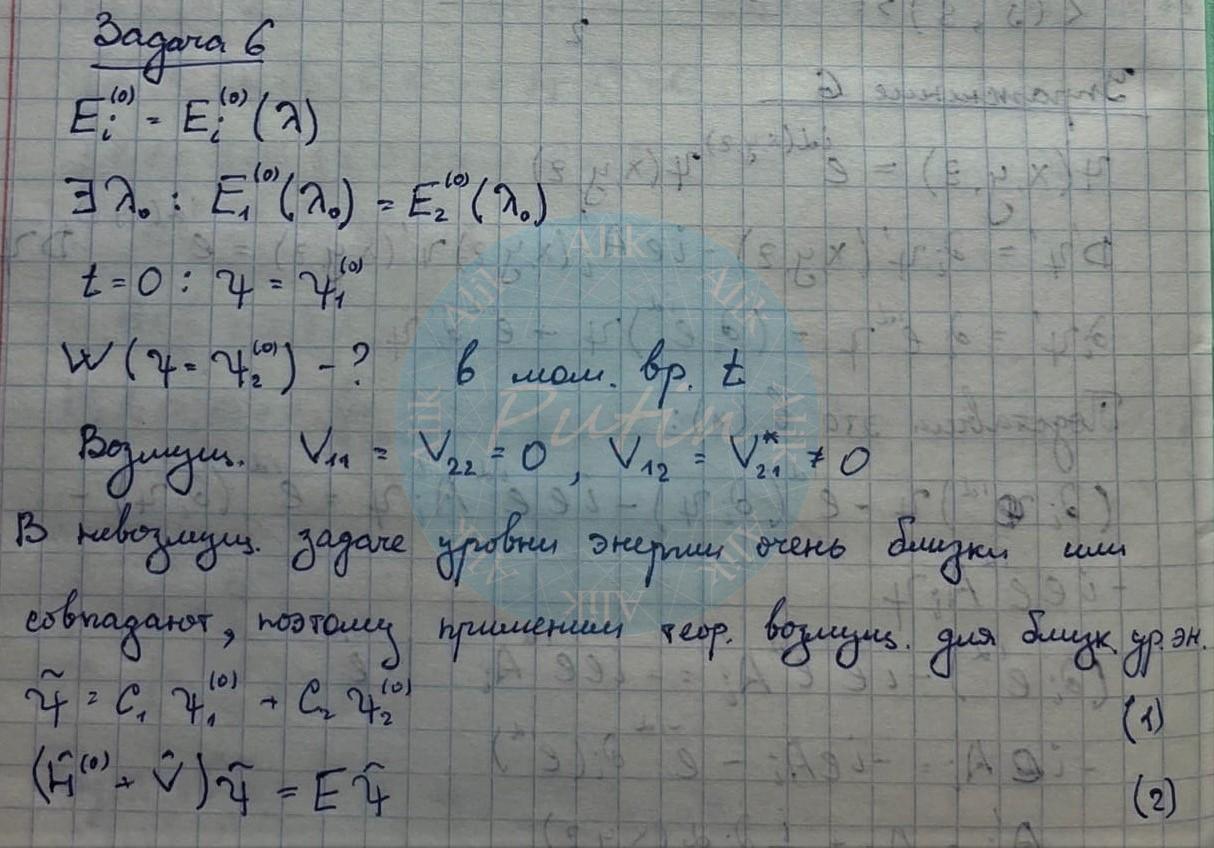 Задача 6
E_i^(0) = E_i^(0) (λ)
∃ λ_0 : E_1^(0) (λ_0) = E_2^(0) (λ_0)
t = 0 : ψ = ψ_1^(0)
W (ψ = ψ_2^(0)) - ? в мом. вр. t
Возмущ. V_11 = V_22 = 0, V_12 = V_21^* ≠ 0
В невозмущ. задаче уровни энергии очень близки или
совпадают, поэтому применим теор. возмущ. для близк. ур. эн.
ψ̃ = C_1 ψ_1^(0) + C_2 ψ_2^(0) (1)
(Ĥ^(0) + V̂) ψ̃ = E ψ̃ (2)
Alik
Alik
Alik
Alik
Alik
Alik
Alik
Alik
Putin